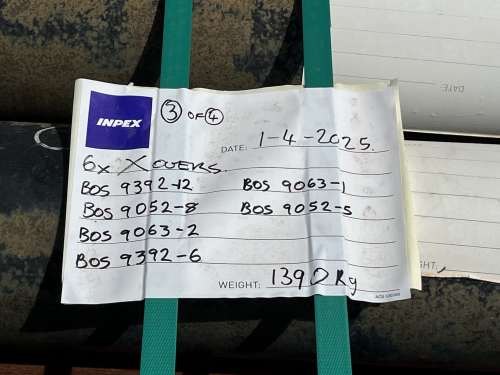 INPEX
3 OF 4
DATE: 1-4-2025.
6x XOVERS.
BOS 9392-12 BOS 9063-1
BOS 9052-8 BOS 9052-5
BOS 9063-2
BOS 9392-6
WEIGHT: 1390 Kg
DATE
HT: